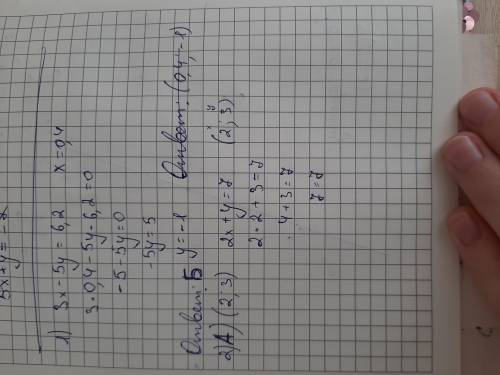 5x+y=-7
1) 3x-5y=6,2 x=0,4
3·0,4-5y-6,2=0
-5-5y=0
-5y=5
y=-1
Ответ: Б Ответ: (0,4; -1)
2) А) (2; 3) 2x+y=7 (2; 3)
x y
2·2+3=7
4+3=7
7=7